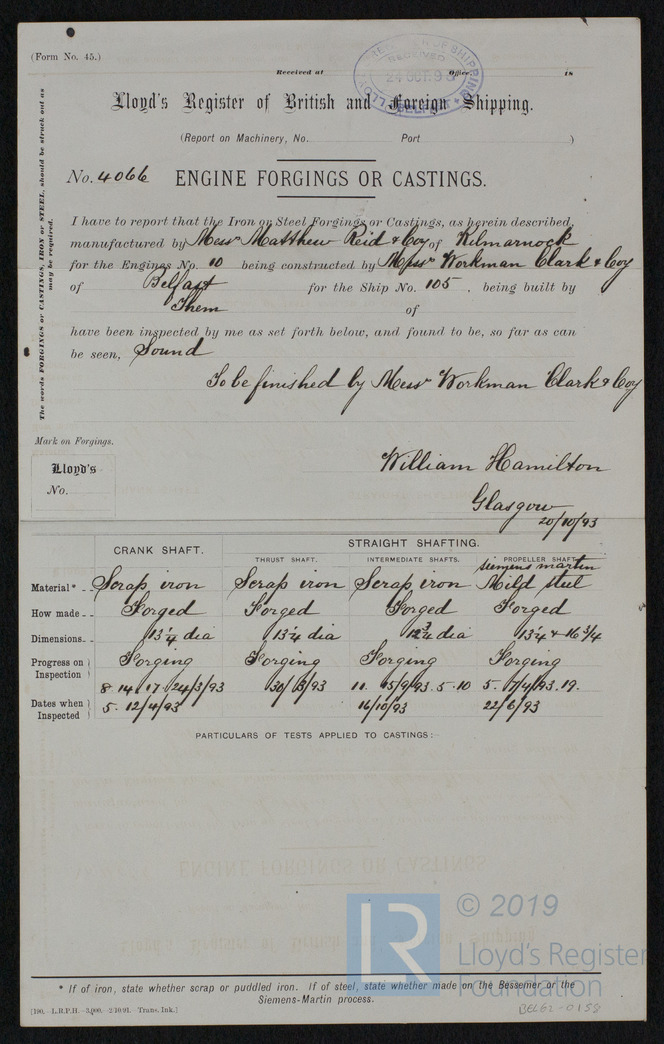 (Form No. 45.)
Received at Office, 18
RECEIVED
24 OCT. 93
BELFAST
Lloyd's Register of British and Foreign Shipping.
(Report on Machinery, No. Port )
No. 4066 ENGINE FORGINGS OR CASTINGS.
I have to report that the Iron or Steel Forgings or Castings, as herein described,
manufactured by Messrs Matthew Reid & Coy of Kilmarnock
for the Engines No. 10 being constructed by Messrs Workman Clark & Coy
of Belfast for the Ship No. 105, being built by
Them of
have been inspected by me as set forth below, and found to be, so far as can
be seen, Sound
To be finished by Messrs Workman Clark & Coy
The words FORGINGS or CASTINGS, IRON or STEEL, should be struck out as
may be required.
Mark on Forgings.
Lloyd's
No.
William Hamilton
Glasgow
20/10/93
CRANK SHAFT. STRAIGHT SHAFTING.
THRUST SHAFT. INTERMEDIATE SHAFTS. PROPELLER SHAFT
siemens martin
Material* Scrap iron Scrap iron Scrap iron Mild steel
How made Forged Forged Forged Forged
Dimensions 13 1/4 dia 13 1/4 dia 12 3/4 dia 13 1/4 & 16 3/4
Progress on Inspection Forging Forging Forging Forging
Dates when Inspected 8. 14. 17. 24/3/93 30/3/93 11. 15/9/93. 5. 10 5. 7/4/93. 19.
5. 12/4/93 16/10/93 22/6/93
PARTICULARS OF TESTS APPLIED TO CASTINGS:-
© 2019
LR
Lloyd's Register
Foundation
* If of iron, state whether scrap or puddled iron. If of steel, state whether made on the Bessemer or the
Siemens-Martin process.
[190. -L.R.P.H.-3,000.-2/10/91. Trans. Ink.]
BEL62-0158